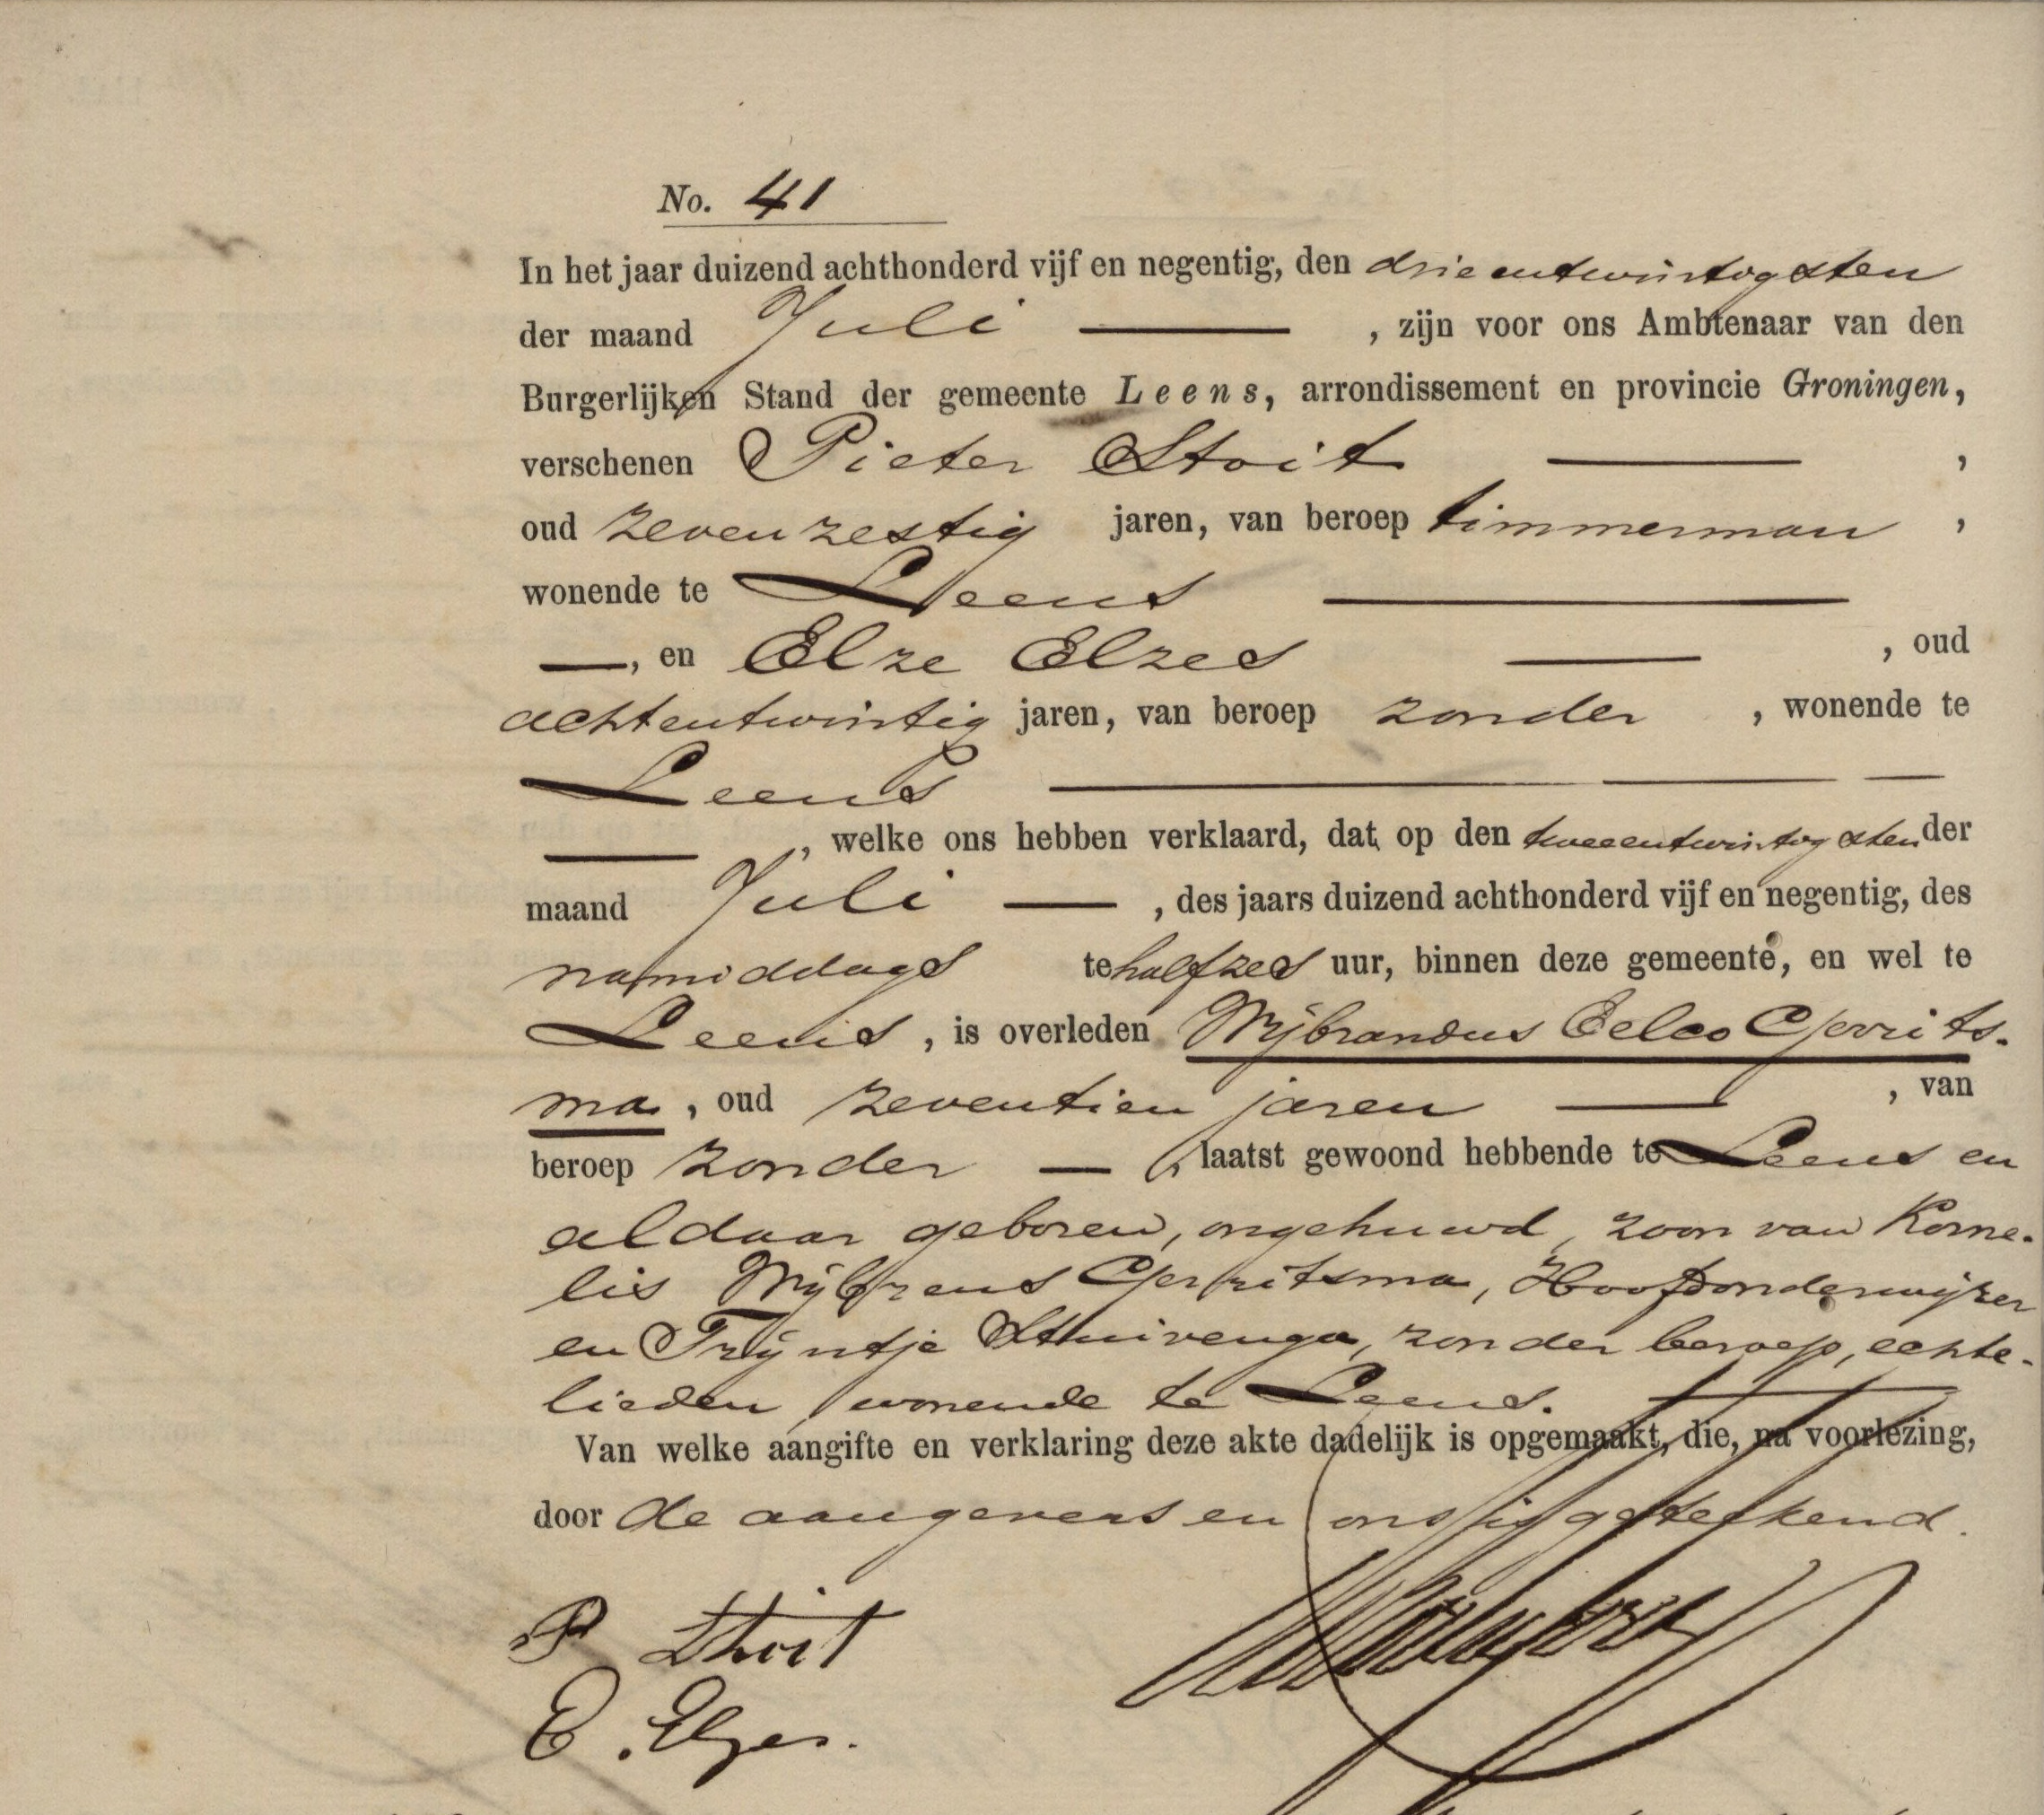 No. 41
In het jaar duizend achthonderd vijf en negentig, den drieentwintigsten
der maand Juli , zijn voor ons Ambtenaar van den
Burgerlijken Stand der gemeente Leens, arrondissement en provincie Groningen,
verschenen Pieter Stoit ,
oud zevenzestig jaren, van beroep timmerman ,
wonende te Leens
, en Elze Elzes , oud
achtentwintig jaren, van beroep zonder , wonende te
Leens
, welke ons hebben verklaard, dat op den tweeentwintigsten der
maand Juli , des jaars duizend achthonderd vijf en negentig, des
namiddags te halfzes uur, binnen deze gemeente, en wel te
Leens , is overleden Wijbrandus Eelco Gerrits-
ma , oud zeventien jaren , van
beroep zonder , laatst gewoond hebbende te Leens en
aldaar geboren, ongehuwd, zoon van Korne-
lis Wijbrens Gerritsma, Hoofdonderwijzer
en Trijntje Stuivenga, zonder beroep, echte-
lieden, wonende te Leens.
Van welke aangifte en verklaring deze akte dadelijk is opgemaakt, die, na voorlezing,
door de aangevers en ons is geteekend.
P Stoit
E. Elzes.